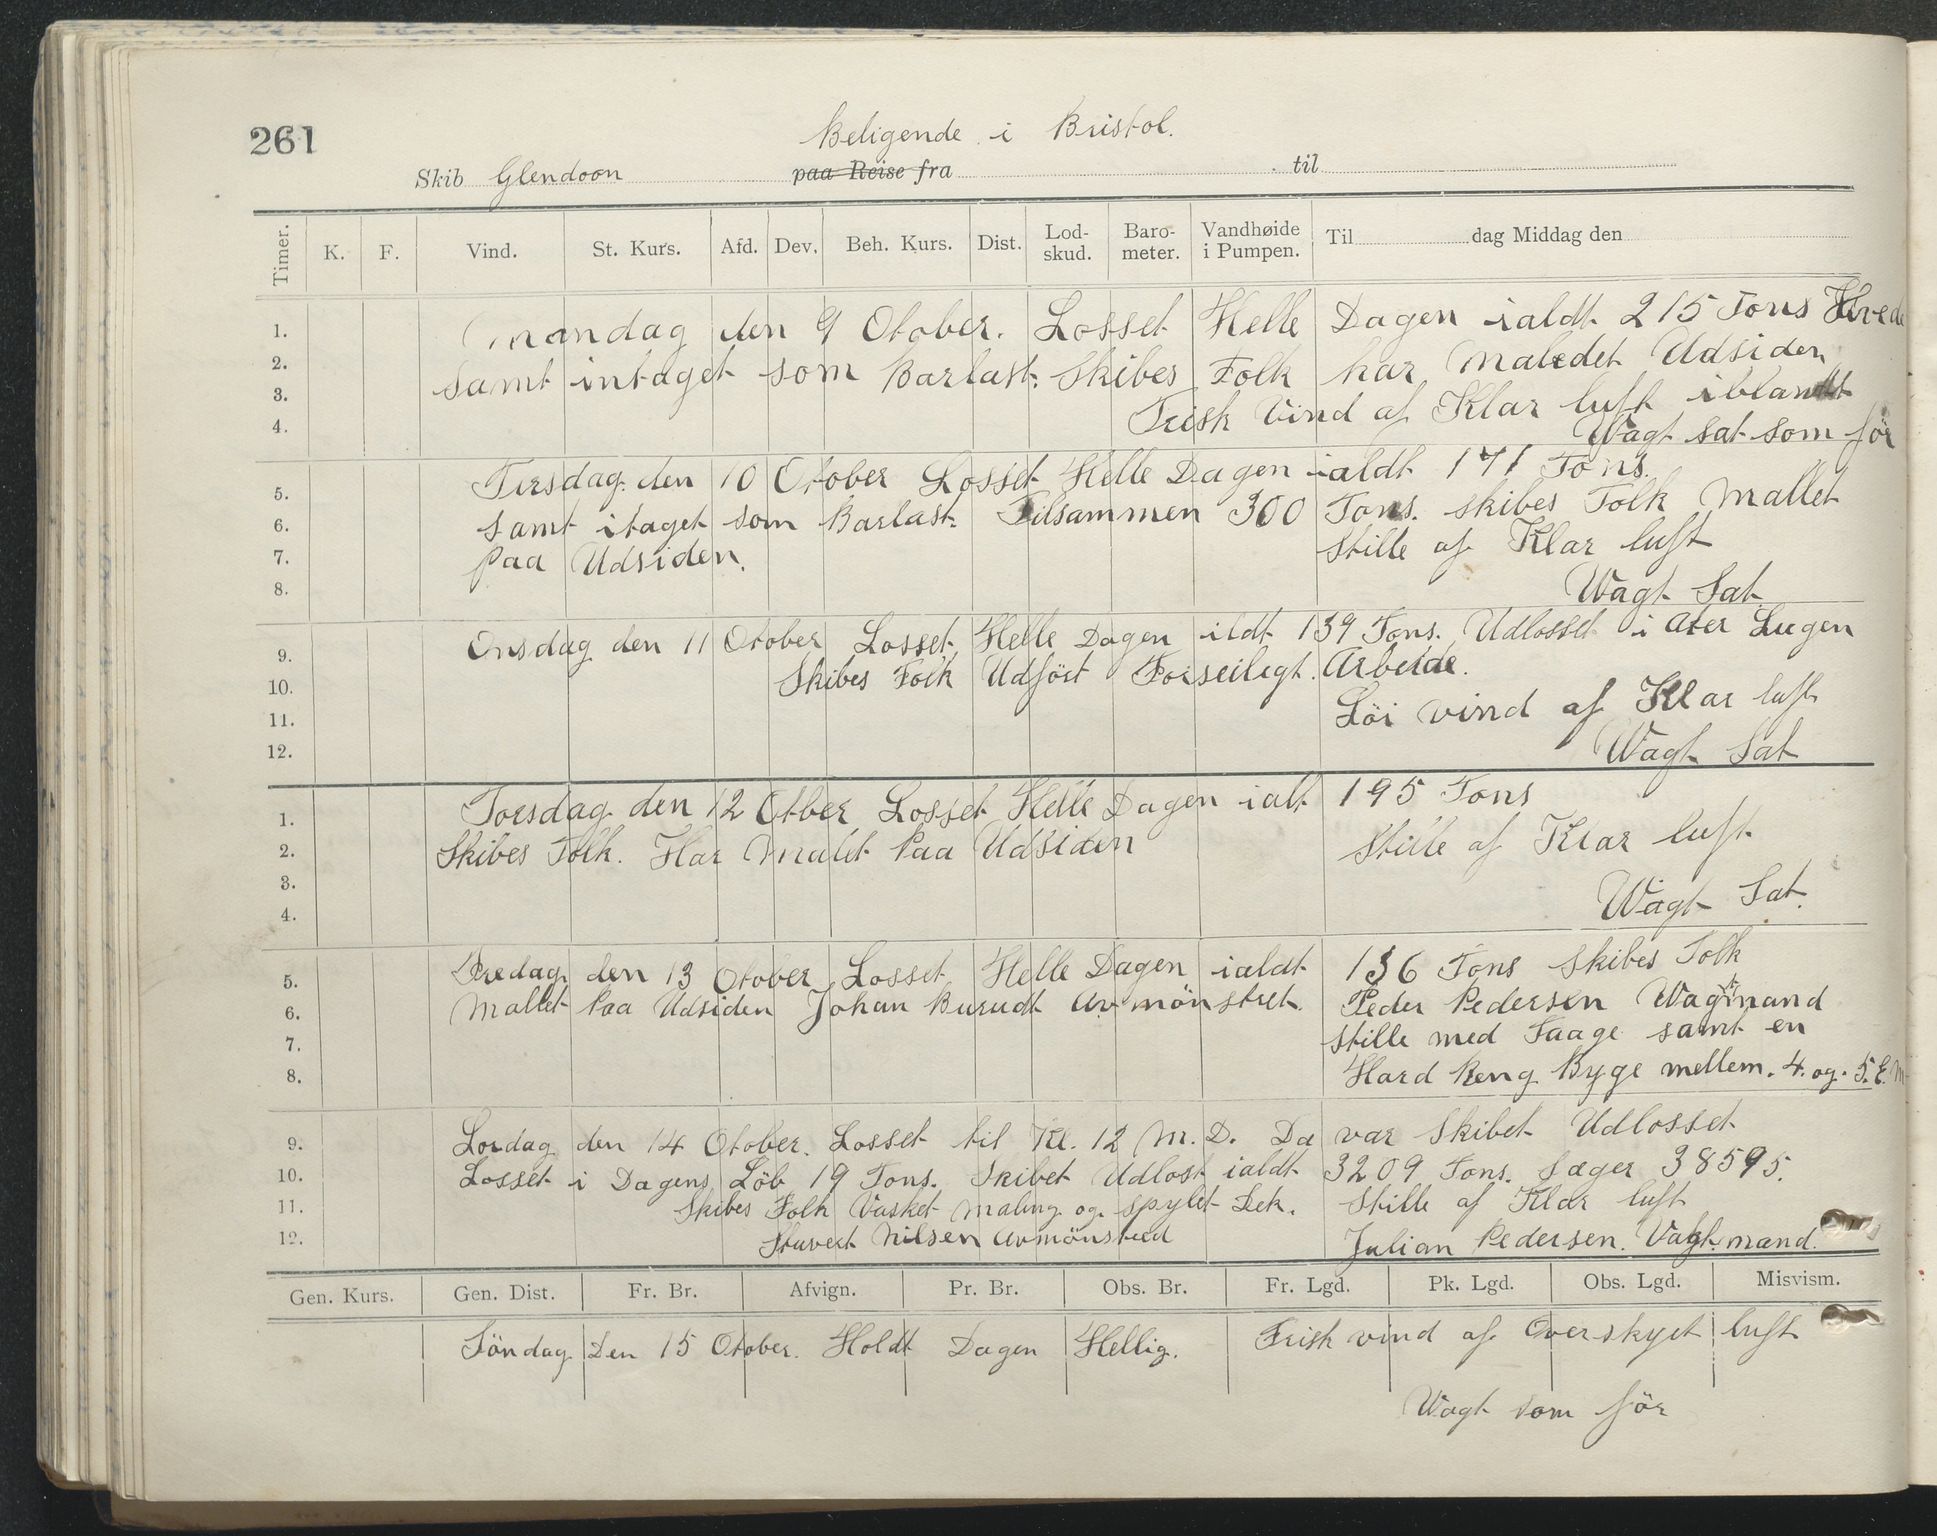 261
Beligende i Bristol.
Skib Glendoon paa Reise fra til
Timer. K. F. Vind. St. Kurs. Afd. Dev. Beh. Kurs. Dist. Lod-skud. Baro-meter. Vandhøide i Pumpen. Til dag Middag den
1. Mandag den 9 Otober. Losset Helle Dagen ialdt 215 Tons Hvede
2. Samt intaget som Barlast. Skibes Folk har Maledet Udsiden
3. Frisk Vind af Klar luft iblandt
4. Wagt sat som för
5. Tirsdag den 10 Otober Losset Helle Dagen ialdt 171 Tons.
6. samt itaget som Barlast. Tilsammen 300 Tons. skibes Folk Mallet
7. paa Udsiden. Stille af Klar luft
8. Wagt Sat
9. Onsdag den 11 Otober Losset Helle Dagen ildt 139 Tons. Udlosset i Ater Lugen
10. Skibes Folk Udfört Forseilegt. Arbeide.
11. Löi vind af Klar luft
12. Wagt Sat
1. Torsdag den 12 Otber Losset Helle Dagen ialt 195 Tons
2. Skibes Folk. Har Malet Paa Udsiden Stille af Klar luft
3.
4. Wagt Sat.
5. Fredag den 13 Otober Losset Helle Dagen ialdt 136 Tons Skibes Folk
6. Mallet Paa Udsiden Johan Burudt Avmönstret. Peder Pedersen Wagtmand
7. Stille med Taage samt en
8. Hard Reng Byge mellem. 4. og. 5. E. M
9. Lordag den 14 Otober. Losset til Kl. 12 M. D. Da var Skibet Udlosset
10. Losset i Dagens Löb 19 Tons. Skibet Udlost ialdt 3209 Tons. Sæger 38595.
11. Skibes Folk Vasket maling og spylet Dek. Stille af Klar luft
12. Stuvert Nilsen Avmönsted Julian Pedersen. Vagt.mand.
Gen. Kurs. Gen. Dist. Fr. Br. Afvign. Pr. Br. Obs. Br. Fr. Lgd. Pk. Lgd. Obs. Lgd. Misvism.
Söndag Den 15 Otober. Holdt Dagen Hellig. Frisk vind af Overskyet luft
Wagt som för